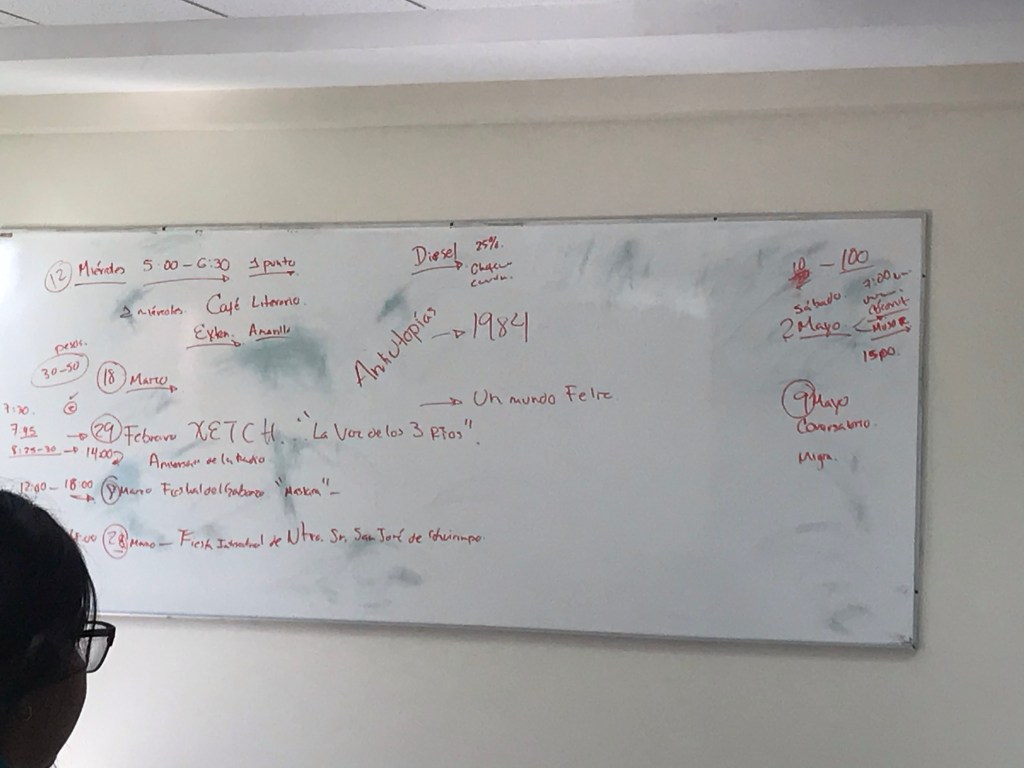 12 Miércoles 5:00 - 6:30 1 punto
Café Literario.
Exten. Amarillo
pesos.
30-50
18 Marzo
7:30.
7:45 → 29 Febrero XETCH. "La Voz de los 3 Ríos".
8:25-30 → 14:00
Aniversario de la Radio
12:00 - 18:00 8 Marzo Festival del Gabanzo
28 Marzo - Fiesta de Ntro. Sr. San José de
Diesel 25%.
Antiutopías → 1984
→ Un mundo Feliz
10 - 100
Sábado.
2 Mayo
1500.
9 Mayo
Conversatorio.
Migra.